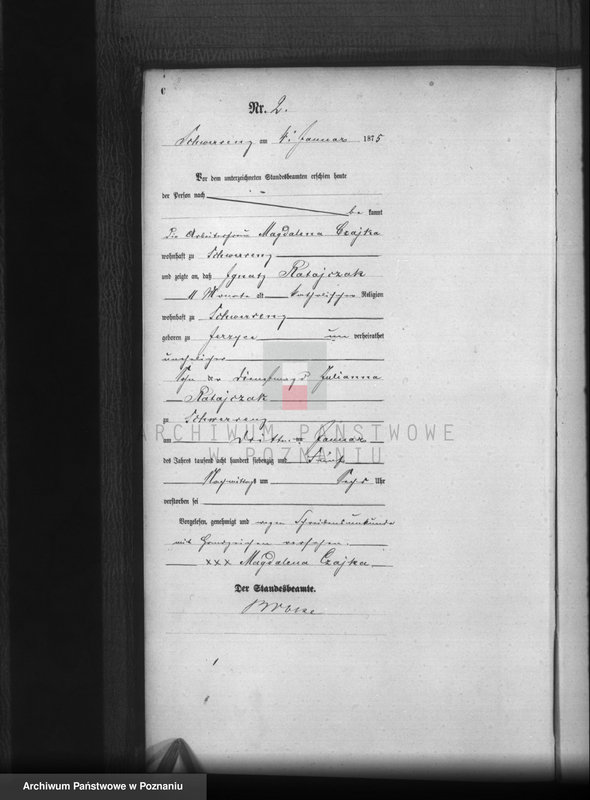 Nr. 2.
Schwersenz am 4. Januar 1875
Vor dem unterzeichneten Standesbeamten erschien heute
der Person nach
be kannt
die Arbeiterfrau Magdalena Czajka
wohnhaft zu Schwersenz
und zeigte an, daß Ignatz Ratajczak
11 Monate alt katholischer Religion
wohnhaft zu Schwersenz
geboren zu Jerzyce un verheirathet
unehelicher
Sohn der Dienstmagd Julianna
Ratajczak
zu Schwersenz
am dritten Januar
des Jahres tausend acht hundert siebenzig und fünf
Nachmittags um sechs Uhr
verstorben sei
Vorgelesen, genehmigt und wegen Schreibensunkunde
mit Handzeichen versehen.
xxx Magdalena Czajka
Der Standesbeamte.
ARCHIWUM PAŃSTWOWE
W POZNANIU
Archiwum Państwowe w Poznaniu